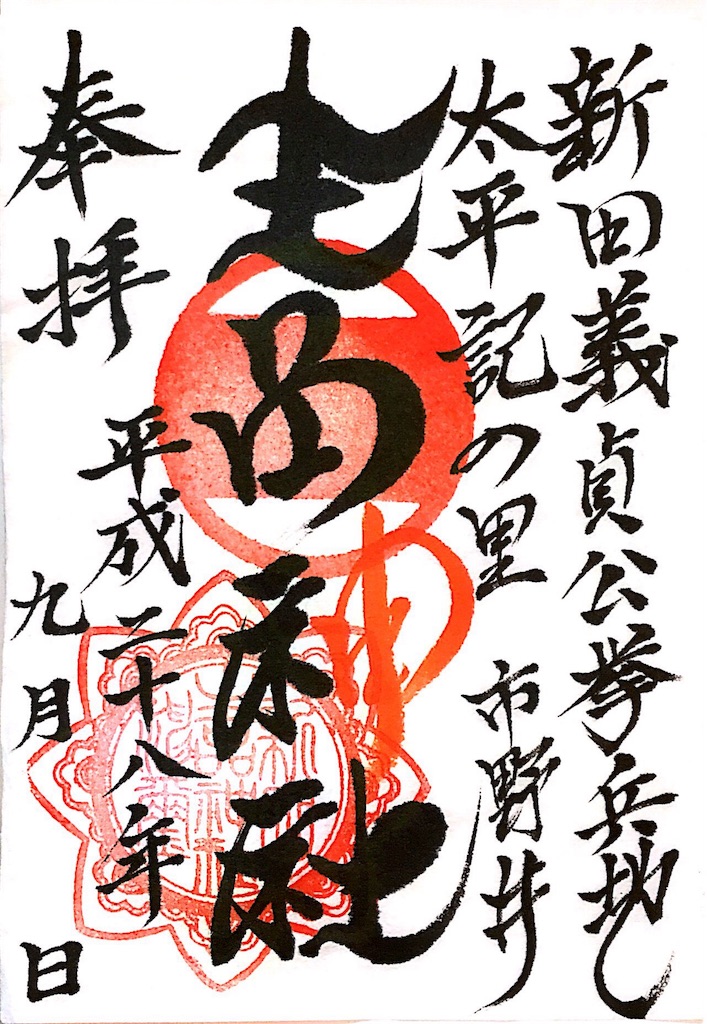 新田義貞公挙兵地
太平記の里 市野井
生品神社
奉拝
平成二十八年
九月 日